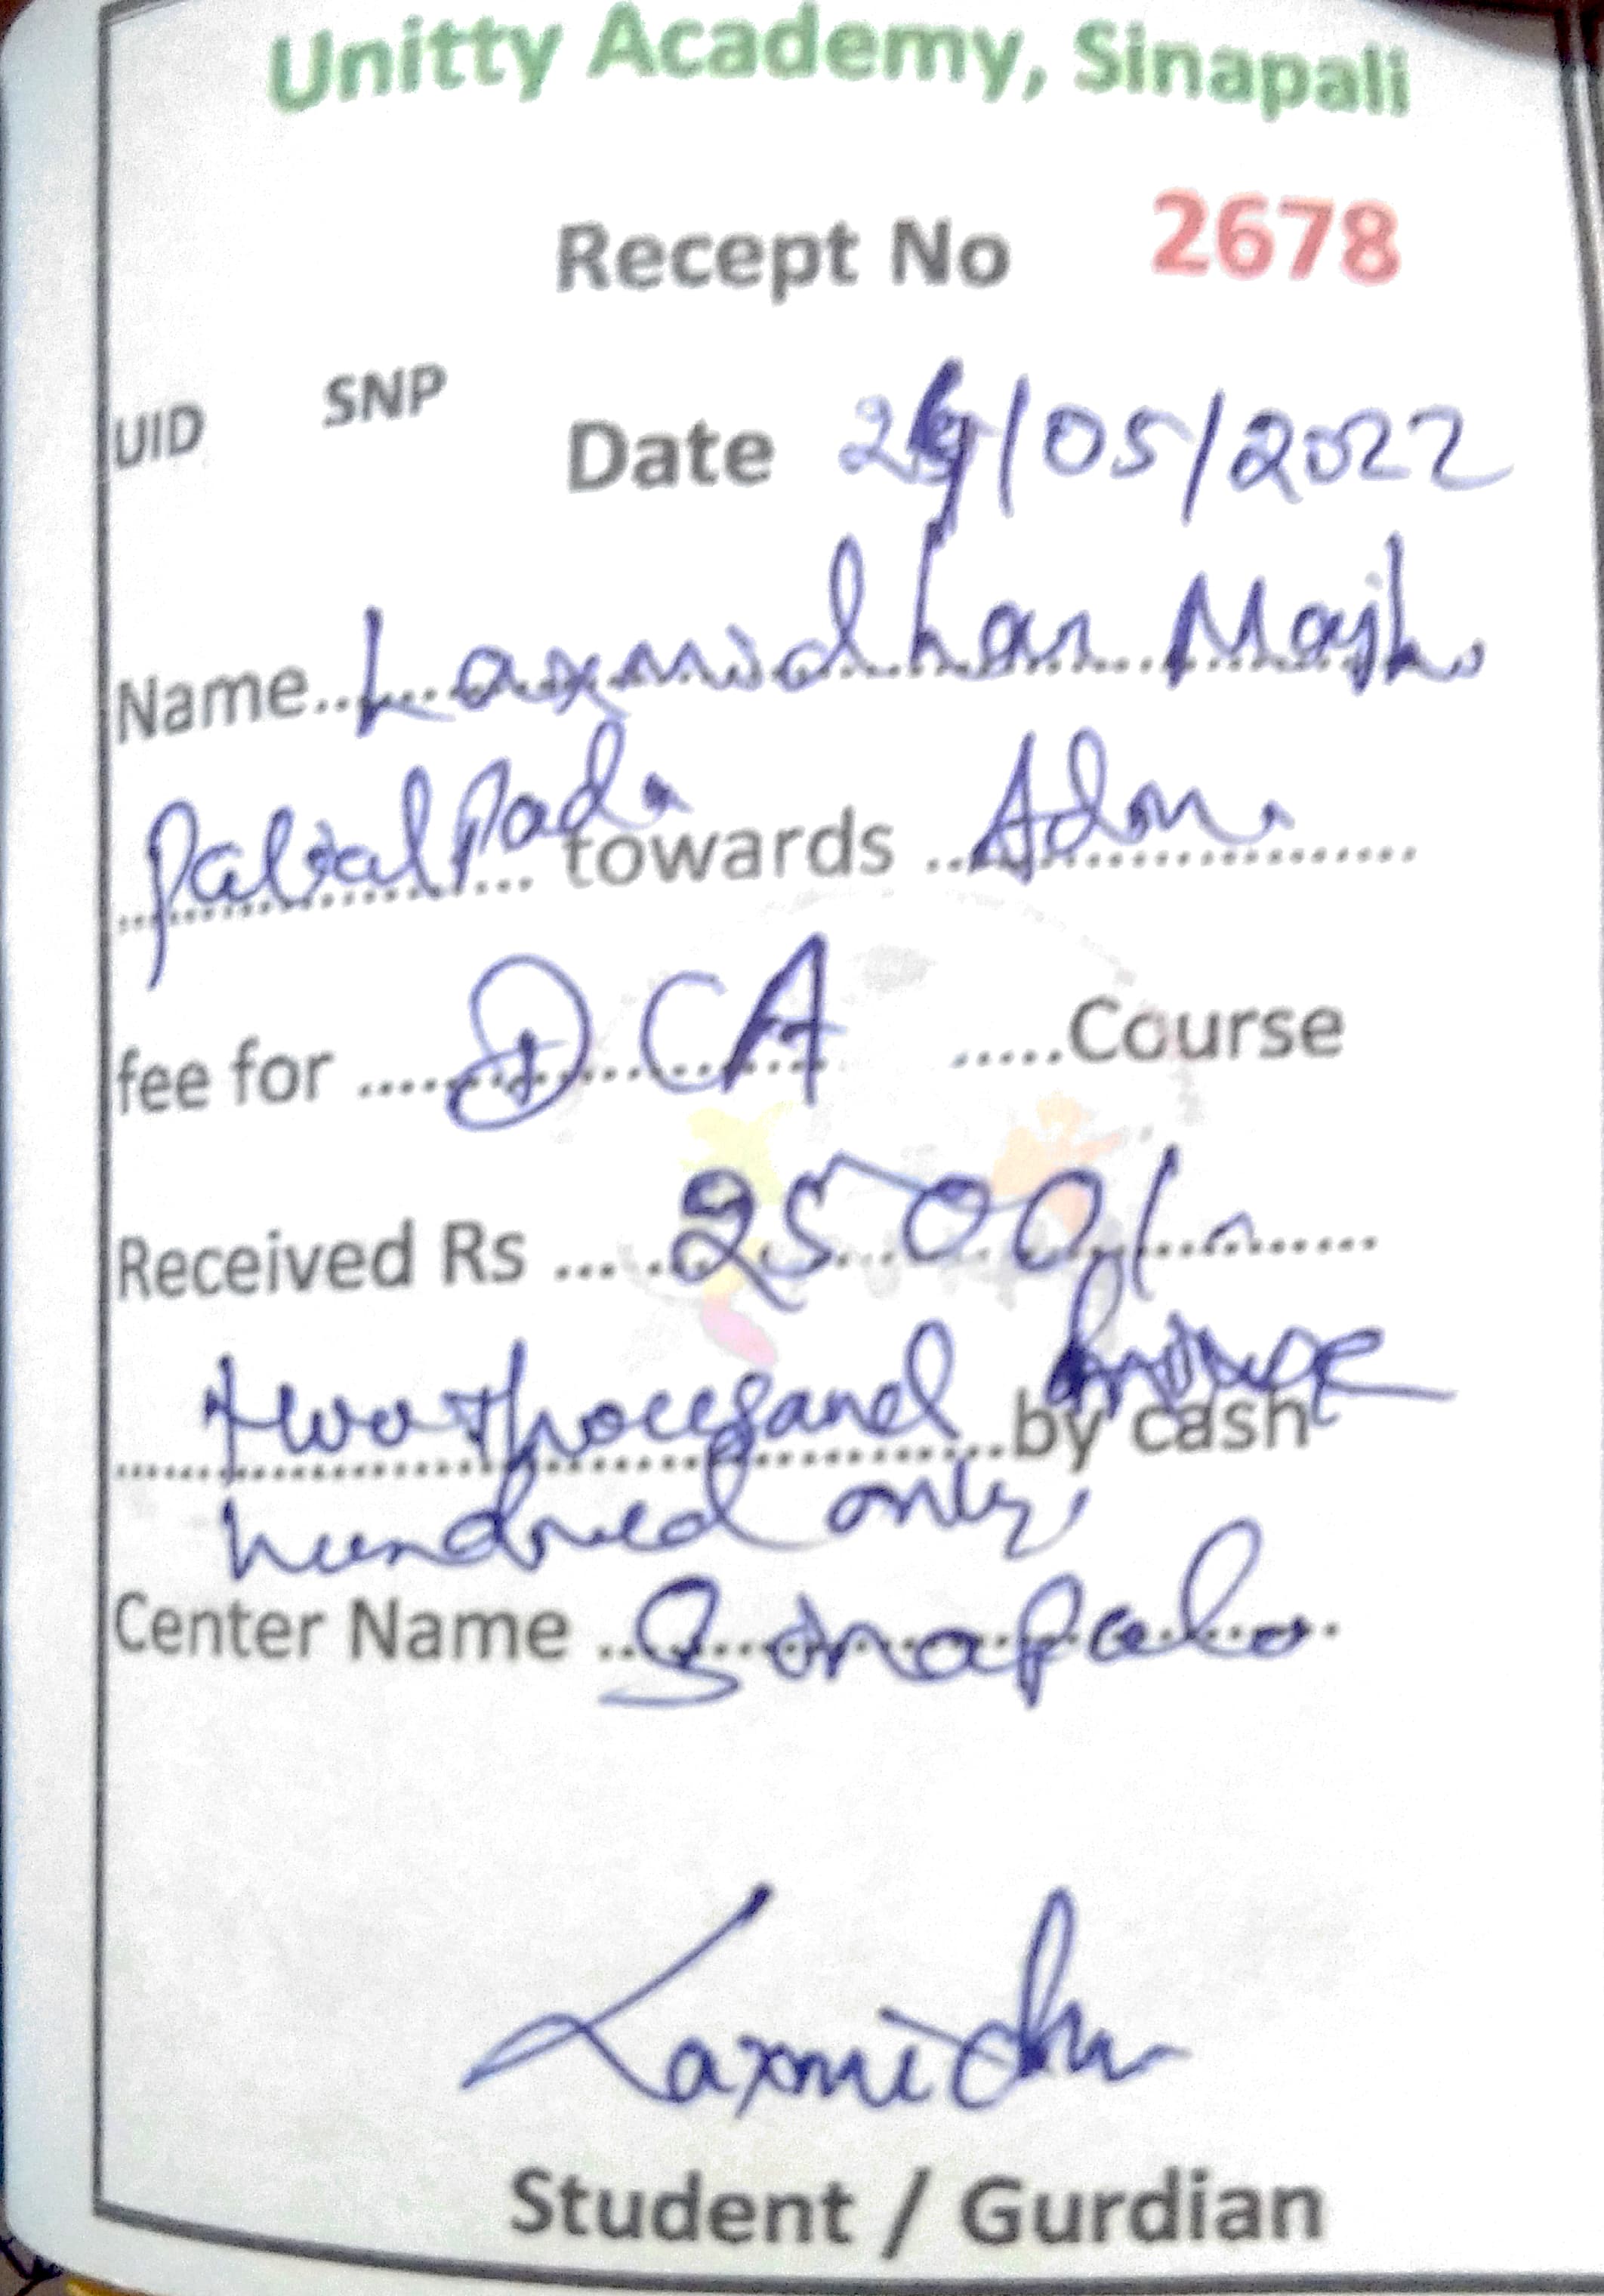 Unitty Academy, Sinapali
Recept No 2678
UID SNP
Date /05/2022
Name Laxmidhar Majhi
towards Adm.
fee for DCA Course
Received Rs 2500/-
two thousand five by cash
hundred only
Center Name Sinapali
Laxmidhar
Student / Gurdian